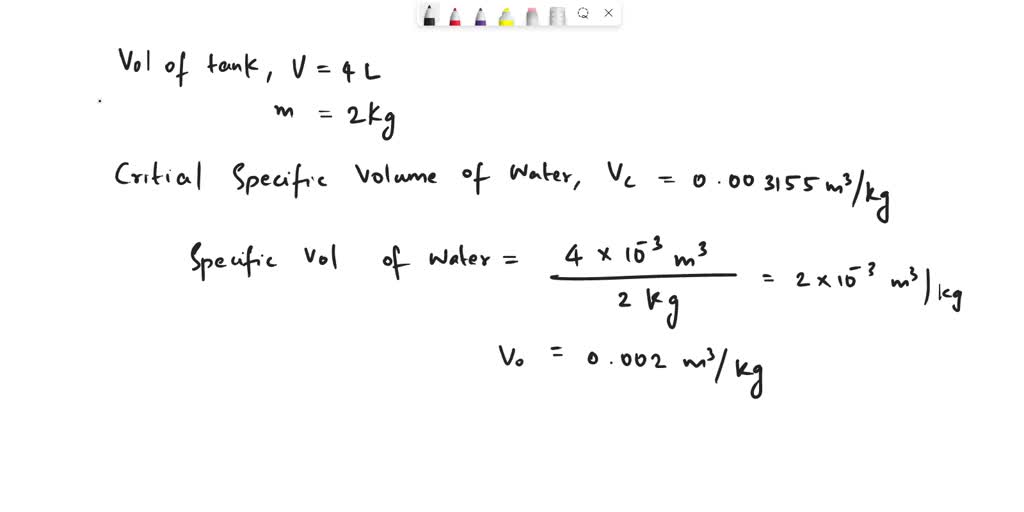 Vol of tank, V = 4 L
m = 2kg
Critial Specific Volume of Water, Vc = 0.003155 m³/kg
Specific Vol of Water = 4 × 10⁻³ m³ / 2 kg = 2 × 10⁻³ m³/kg
V₀ = 0.002 m³/kg